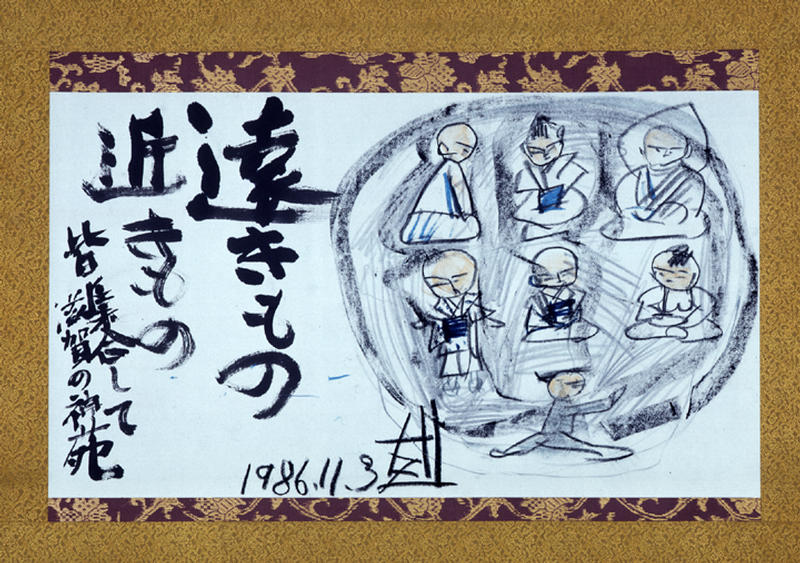 遠きもの
近きもの
皆集合して
滋賀の神苑
1986.11.3